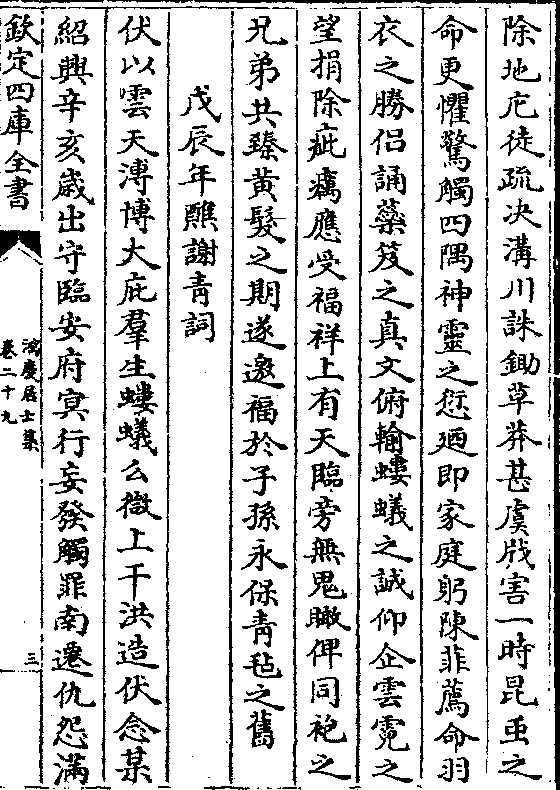 除地庀徒疏决溝川誅鋤草莽甚虞戕害一時昆䖝之
命更懼驚觸四隅神靈之愆廼即家庭躬陳菲薦命羽
衣之勝侣誦蘂笈之真文俯輸螻蟻之誠仰企雲霓之
望捐除疵癘應受福祥上有天臨旁無鬼瞰俾同袍之
兄弟共臻黄髮之期遂邀福於子孫永保青氊之舊
戊辰年醮謝青詞
伏以雲天溥博大庇羣生螻蟻么微上干洪造伏念某
紹興辛亥歳出守臨安府寘行妄發觸罪南遷仇怨滿
欽定四庫全書
鴻慶居士集
卷二十九
三